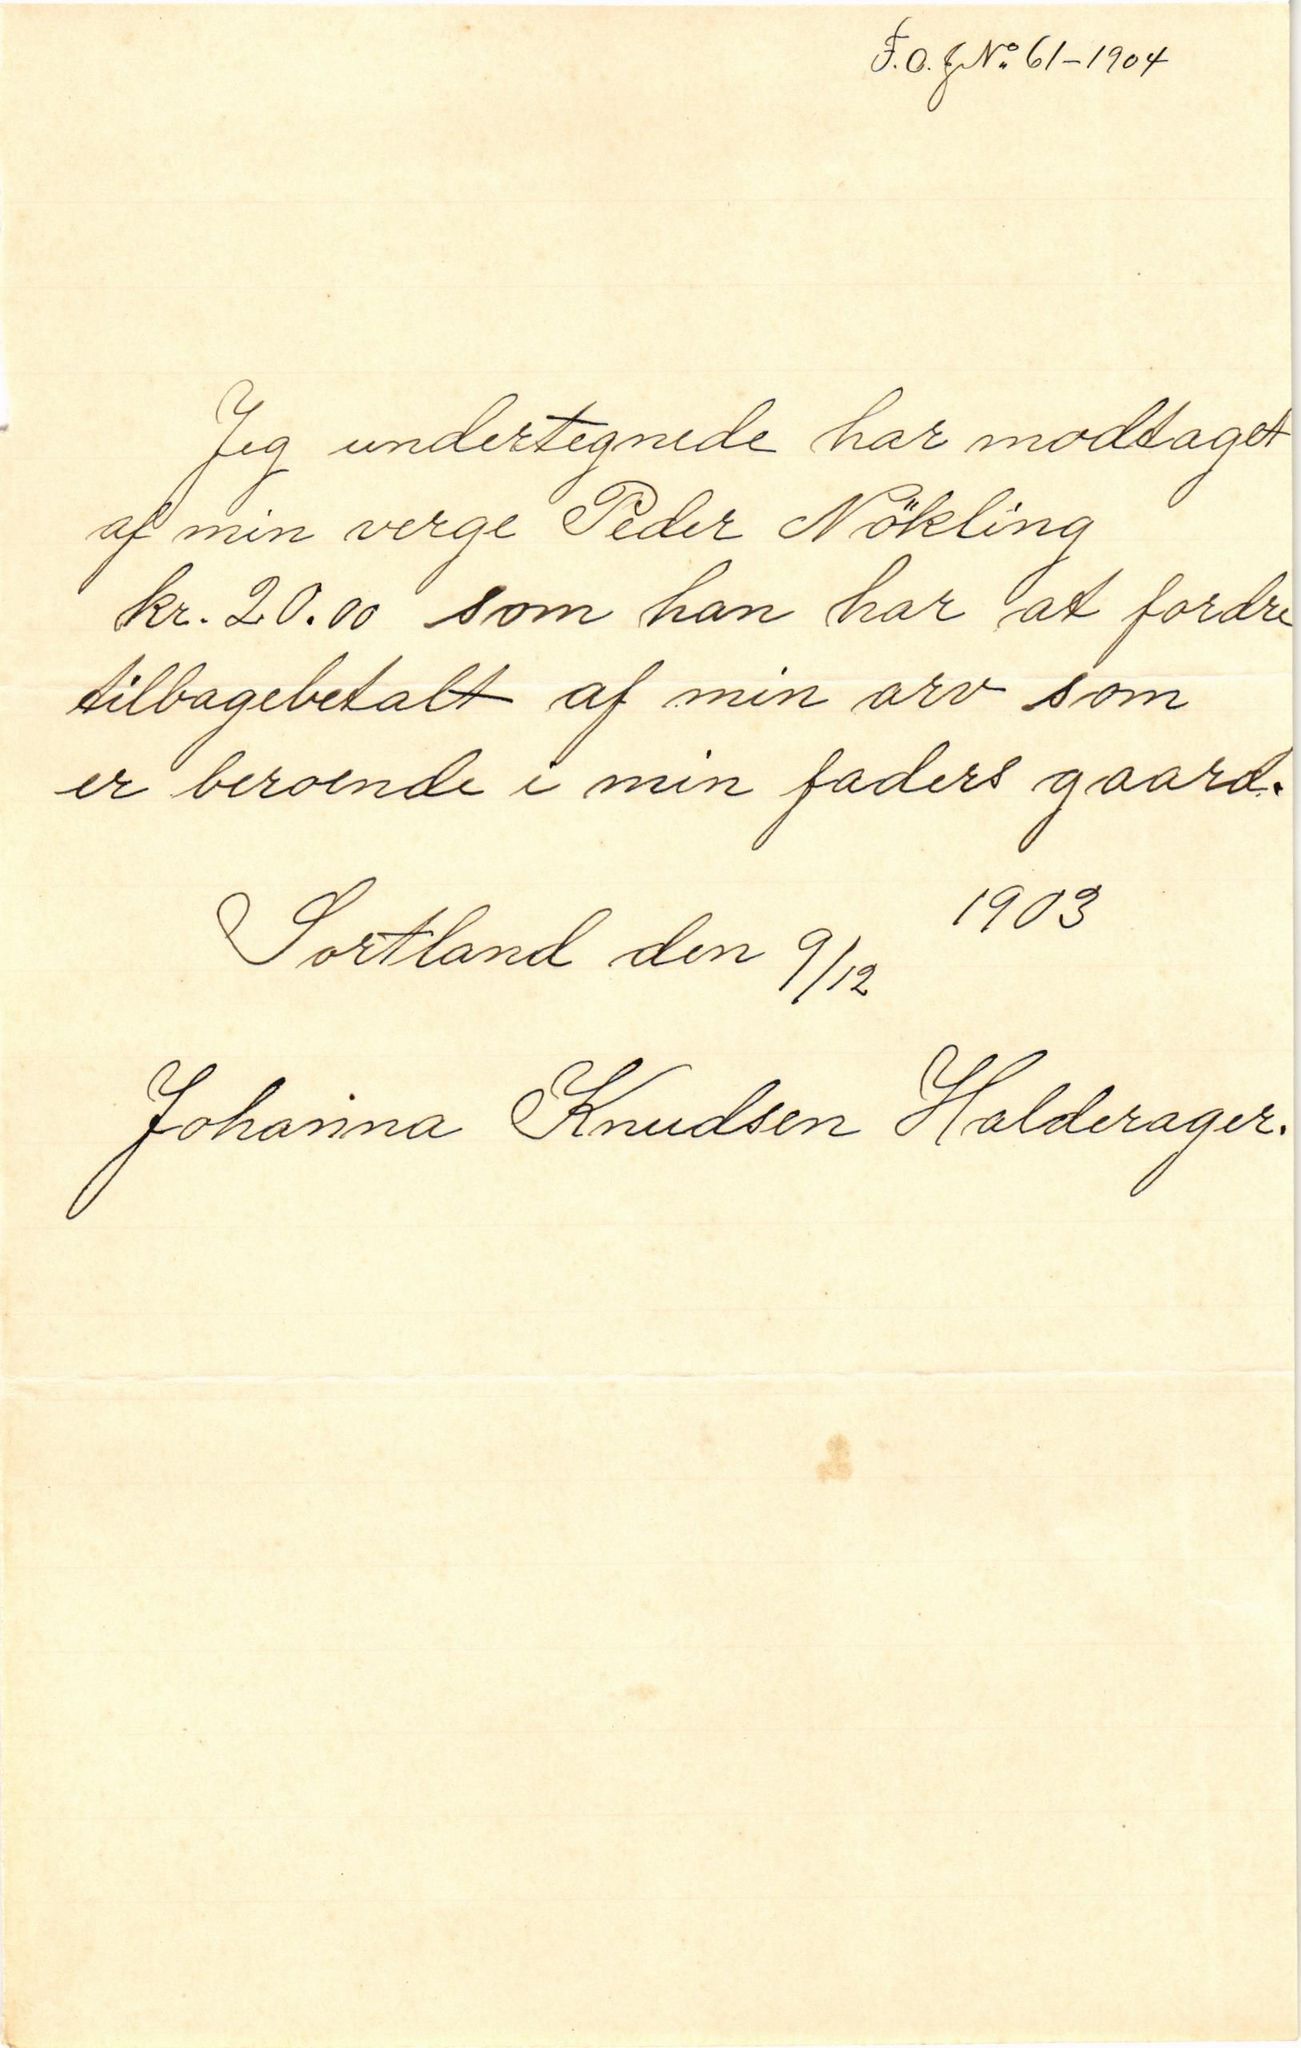 F.O.J No 61-1904
Jeg undertegnede har modtaget
af min verge Peder Nökling
kr. 20.00 som han har at fordre
tilbagebetalt af min arv som
er beroende i min faders gaard.
Sortland den 9/12 1903
Johanna Knudsen Halderager.